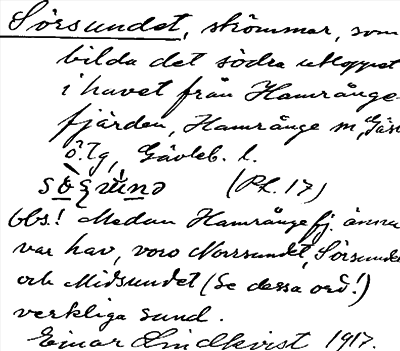 Sörsundet, strömmar, som
bilda det södra utloppet
i havet från Hamrånge-
fjärden, Hamrånge sn,
ö. Tg, Gävleb. l.
(Rf. 17)
Obs! Medan Hamrångefj. ännu
var hav, voro Norrsundet, Sörsundet
och Midsundet (Se dessa ord!)
verkliga sund.
Einar Lindkvist 1917.